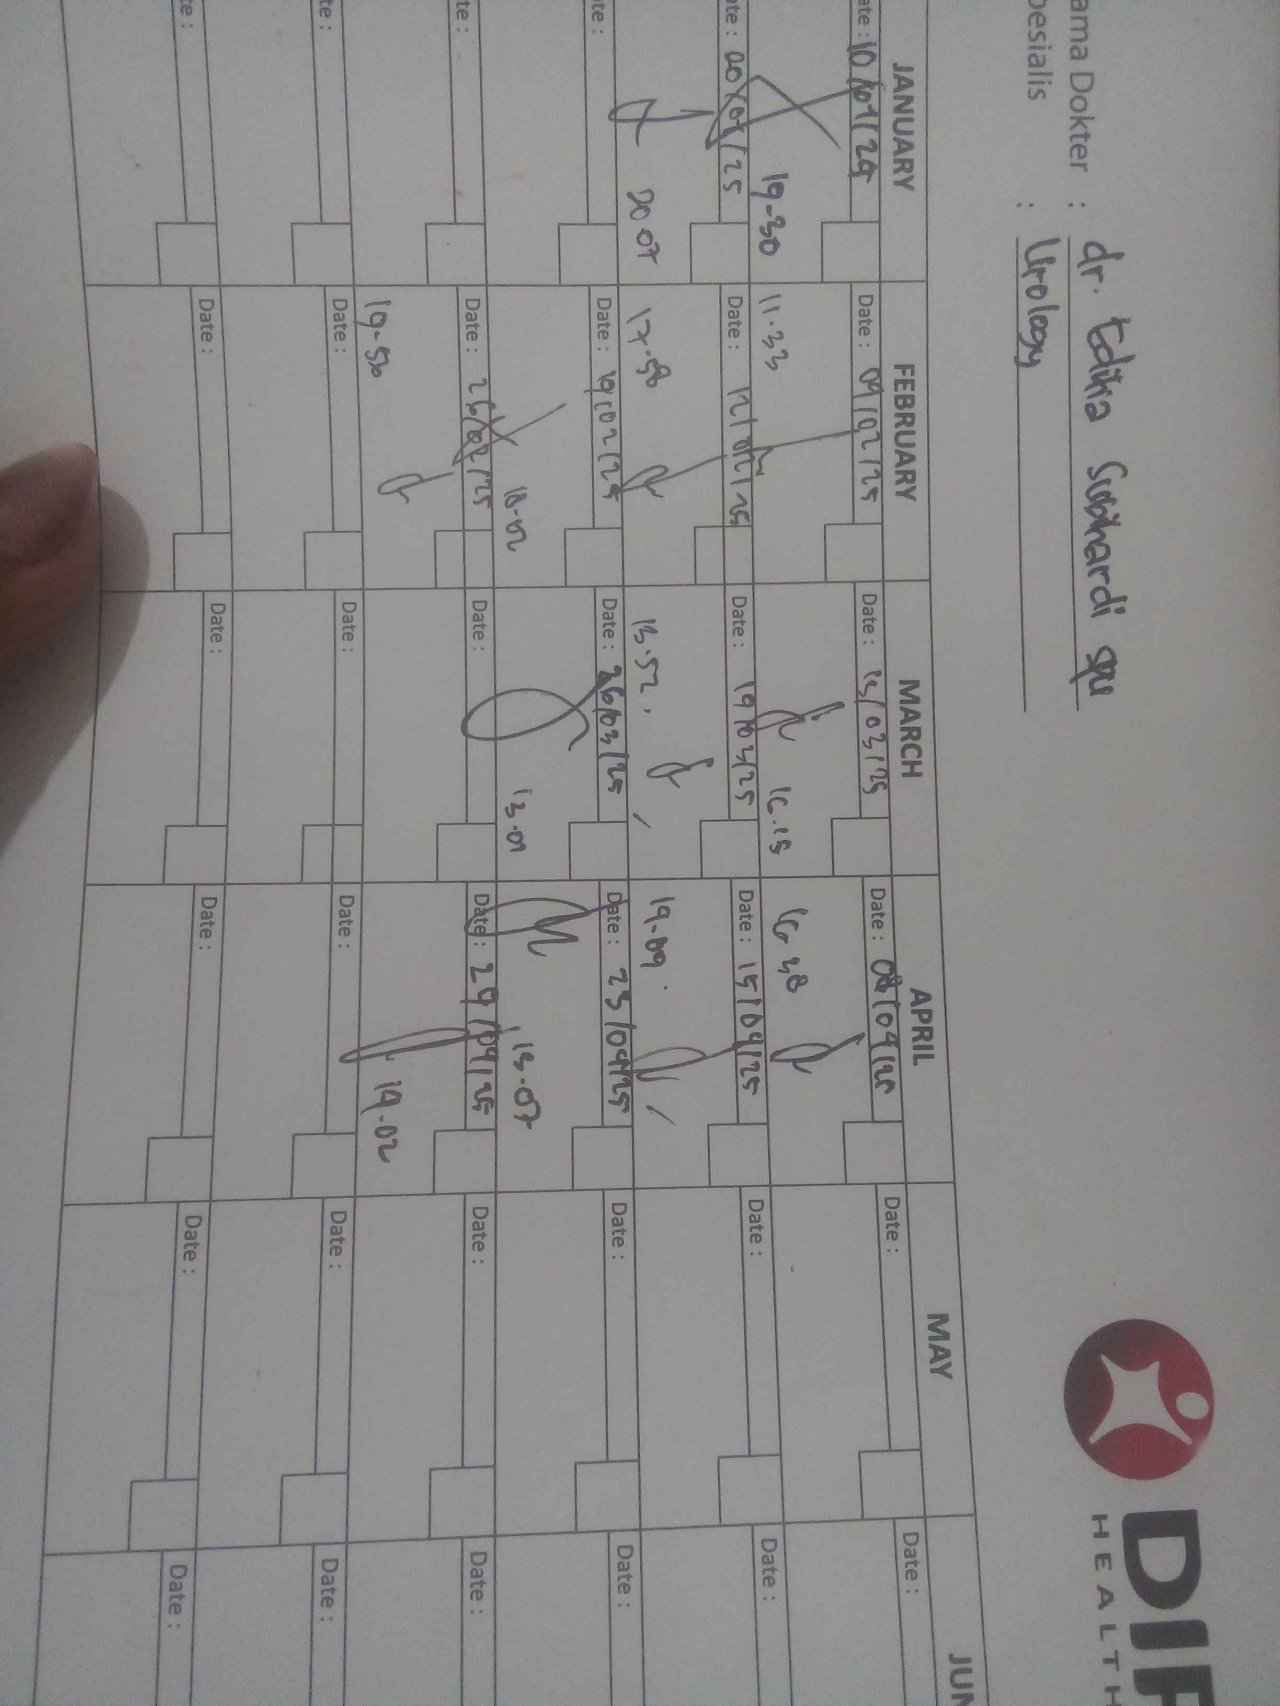 DI
HEALTH
ama Dokter : dr. Edika Subhardi spu
pesialis : Urology
JANUARY FEBRUARY MARCH APRIL MAY JUN
ate : 10/01/25 Date : 04/02/25 Date : 13/03/25 Date : 08/04/25 Date : Date :
19-30 11.33 16.15 16.38
ate : 20/01/25 Date : 12/02/25 Date : 19/03/25 Date : 15/04/25 Date : Date :
20 07 17.58 13.52. 19.09.
te : Date : 19/02/25 Date : 26/03/25 Date : 23/04/25 Date : Date :
18-02 13.01 13.07
te : Date : 26/02/25 Date : Date : 29/04/25 Date : Date :
19-56 19.02
te : Date : Date : Date : Date : Date :
te : Date : Date : Date : Date : Date :